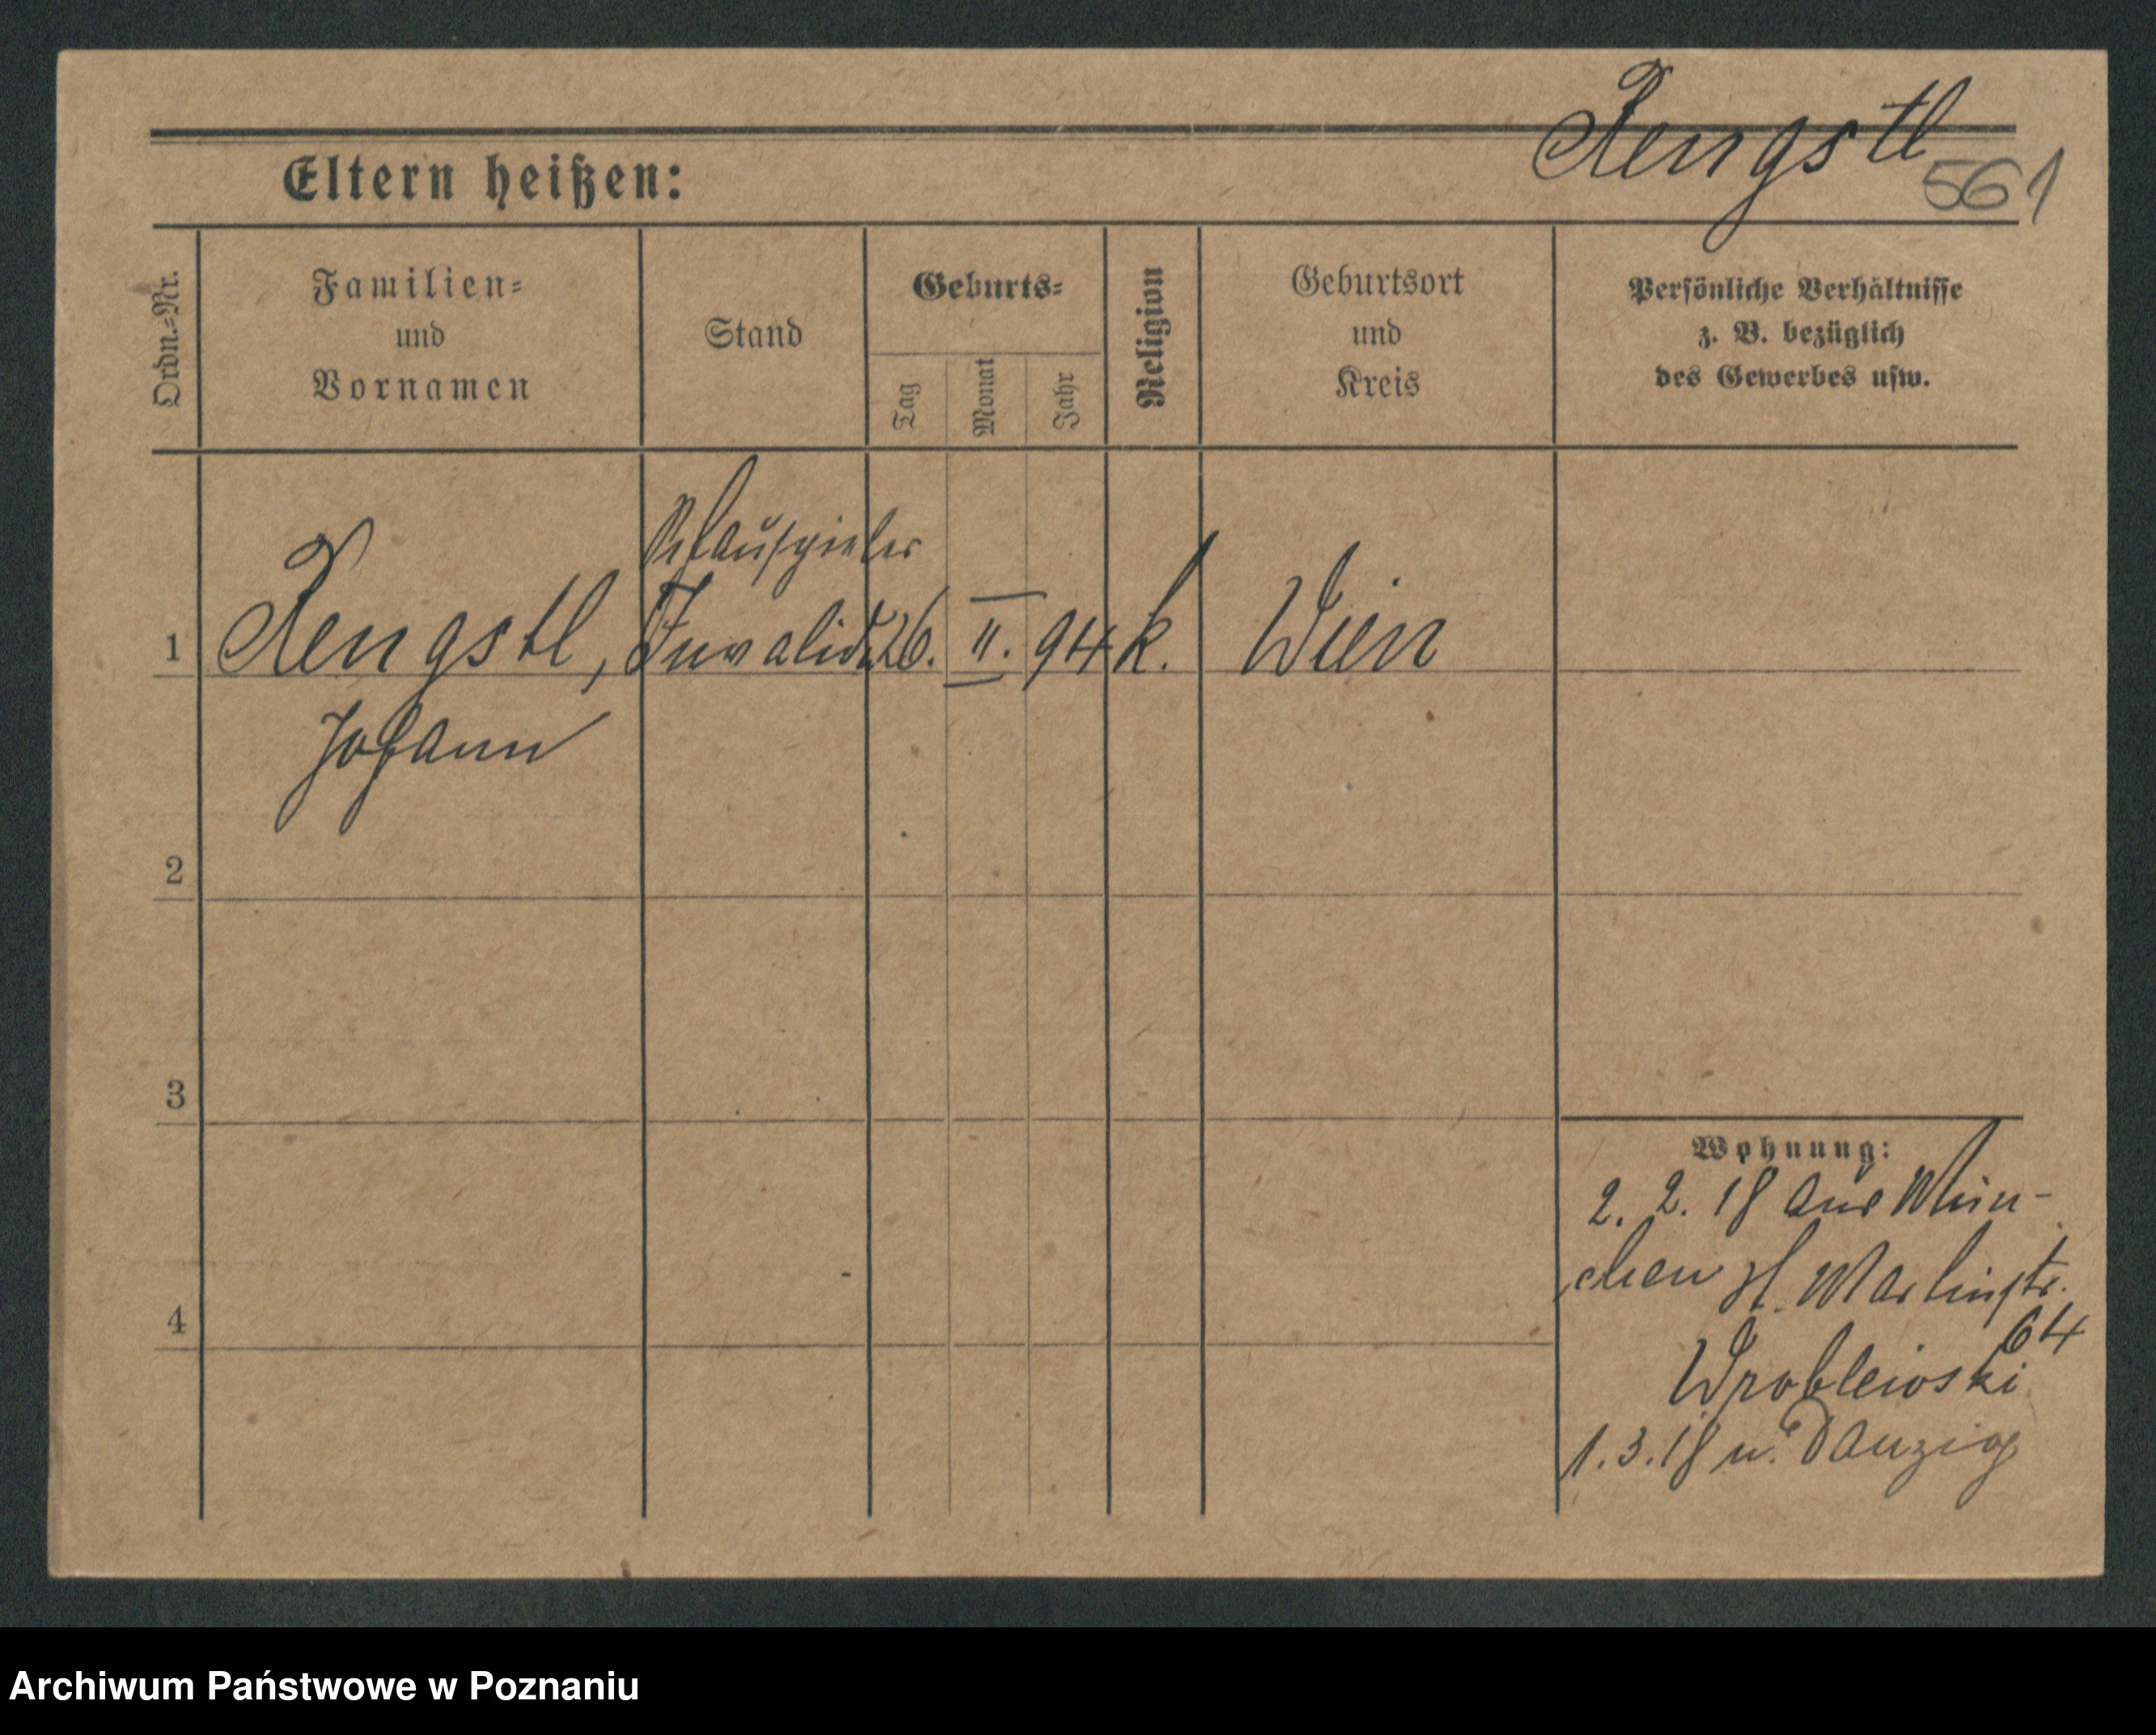 Rengstl
561
Eltern heißen:
Ordn.=Nr.
Familien=
und
Vornamen
Stand
Geburts=
Tag
Monat
Jahr
Religion
Geburtsort
und
Kreis
Persönliche Verhältnisse
z. B. bezüglich
des Gewerbes usw.
Schauspieler
1 Rengstl, Invalide 26. II. 94 k. Wien
Johann
2
3
4
Wohnung:
2. 2. 18 aus Mün-
chen Martinstr.
64
Wroblewski
1.3.18 n. Danzig
Archiwum Państwowe w Poznaniu